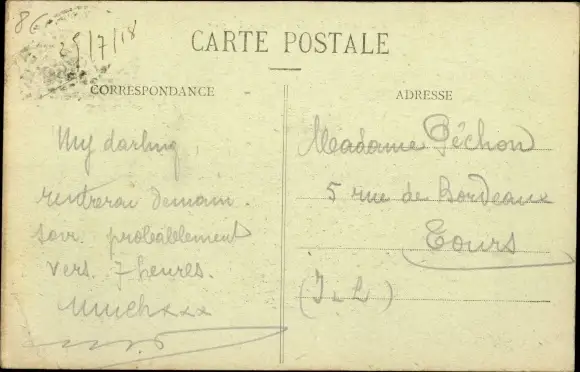 86
25/7/18
CARTE POSTALE
CORRESPONDANCE
My darling,
rentrerai demain
soir probablement
vers 7 heures.
Much xxx
ADRESSE
Madame Péchon
5 rue de Bordeaux
Tours
(I & L)